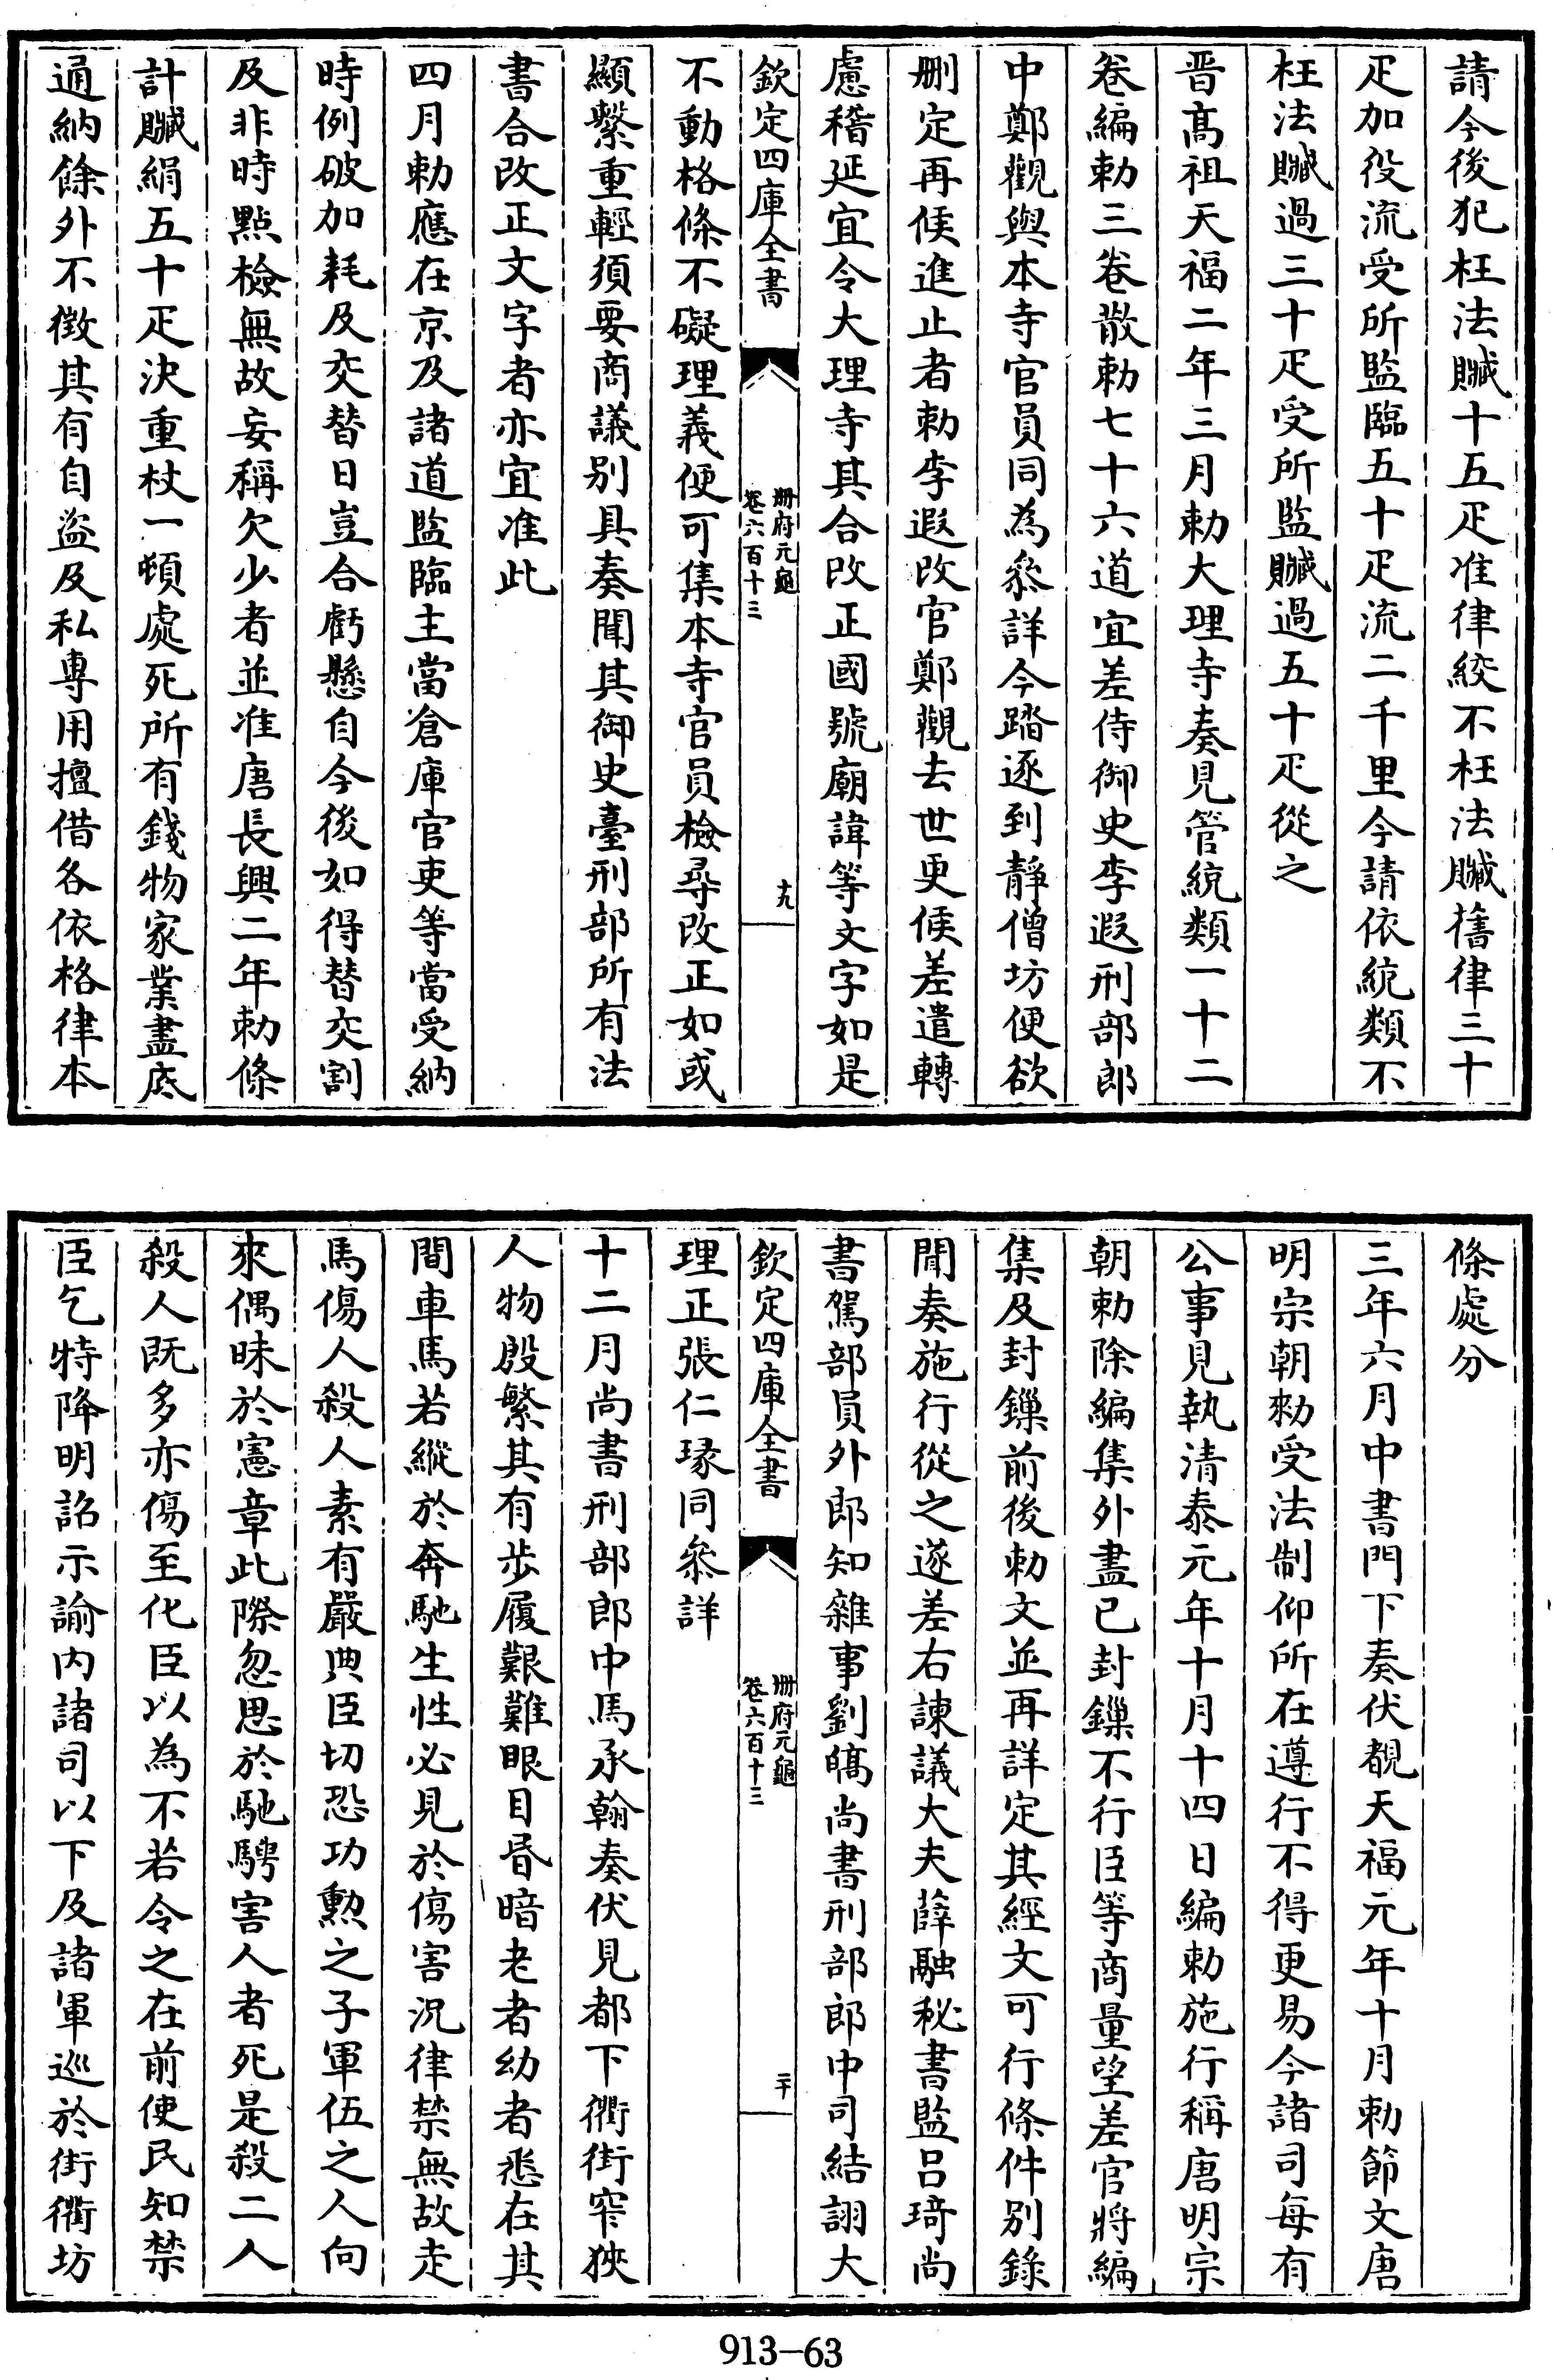 請今後犯枉法贓十五疋准律絞不枉法贓舊律三十
疋加役流受所監臨五十疋流二千里今請依統類不
枉法贓過三十疋受所監贓過五十疋從之
晋髙祖天福二年三月勅大理寺奏見管統類一十二
卷編勅三卷散勅七十六道宜差侍御史李遐刑部郎
中鄭觀與本寺官員同為叅詳今踏逐到靜僧坊便欲
刪定再候進止者勅李遐改官鄭觀去世更候差遣轉
慮稽延宜令大理寺其合改正國號廟諱等文字如是
欽定四庫全書
冊府元龜
卷六百十三
十九
不動格條不礙理義便可集本寺官員檢尋改正如或
顯繫重輕須要商議别具奏聞其御史臺刑部所有法
書合改正文字者亦宜准此
四月勅應在京及諸道監臨主當倉庫官吏等當受納
時例破加耗及交替日豈合虧懸自今後如得替交割
及非時點檢無故妄稱欠少者並准唐長興二年勅條
計贓絹五十疋決重杖一頓處死所有錢物家業盡底
通納餘外不徵其有自盜及私専用擅借各依格律本
條處分
三年六月中書門下奏伏覩天福元年十月勅節文唐
明宗朝勅受法制仰所在遵行不得更易今諸司每有
公事見執清泰元年十月十四日編勅施行稱唐明宗
朝勅除編集外盡已封鏁不行臣等商量望差官將編
集及封鏁前後勅文並再詳定其經文可行條件别錄
聞奏施行從之遂差右諫議大夫薛融秘書監呂琦尚
書駕部員外郎知雜事劉皥尚書刑部郎中司結詡大
欽定四庫全書
冊府元龜
卷六百十三
二十
理正張仁瑑同叅詳
十二月尚書刑部郎中馬承翰奏伏見都下衢街窄狹
人物殷繁其有步履艱難眼目昏暗老者幼者悉在其
間車馬若縱於奔馳生性必見於傷害況律禁無故走
馬傷人殺人素有嚴典臣切恐功勲之子軍伍之人向
來偶昧於憲章此際忽思於馳騁害人者死是殺二人
殺人既多亦傷至化臣以為不若令之在前使民知禁
臣乞特降明詔示諭内諸司以下及諸軍巡於街衢坊
913-63